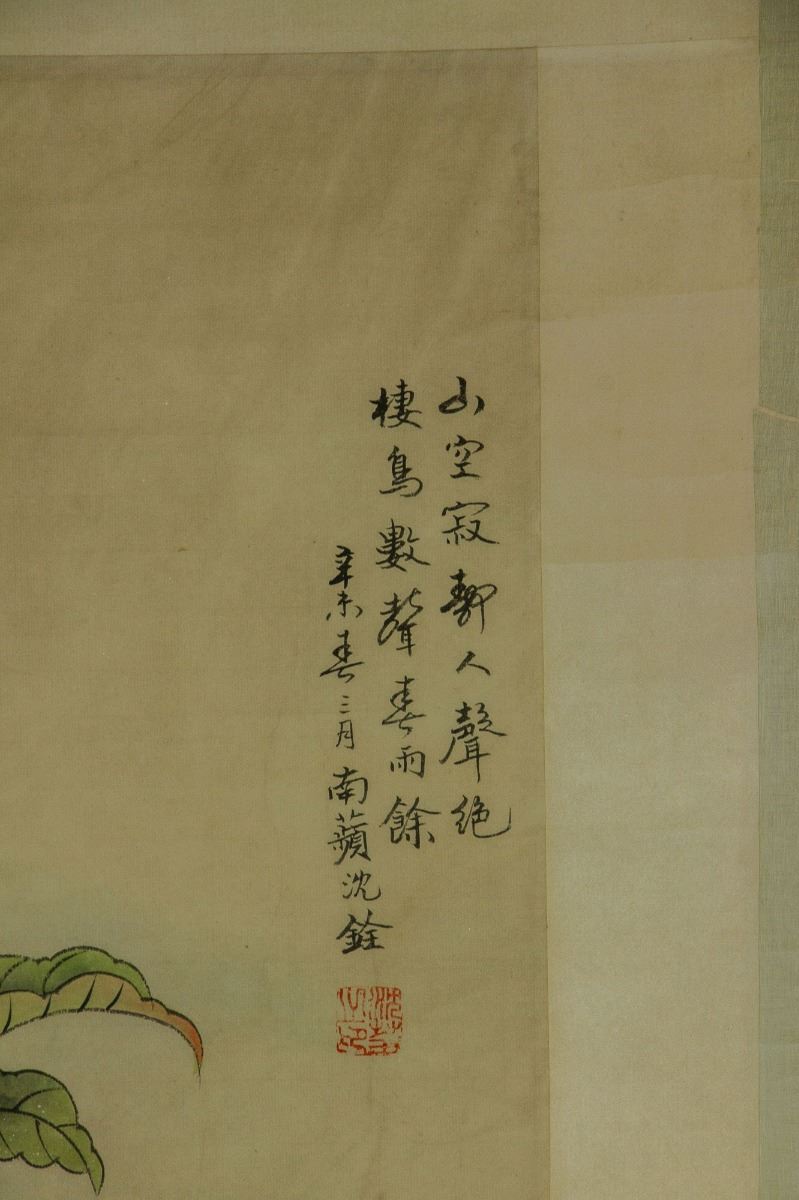 山空寂靜人聲絕
棲鳥數聲春雨餘
辛未春三月南蘋沈銓